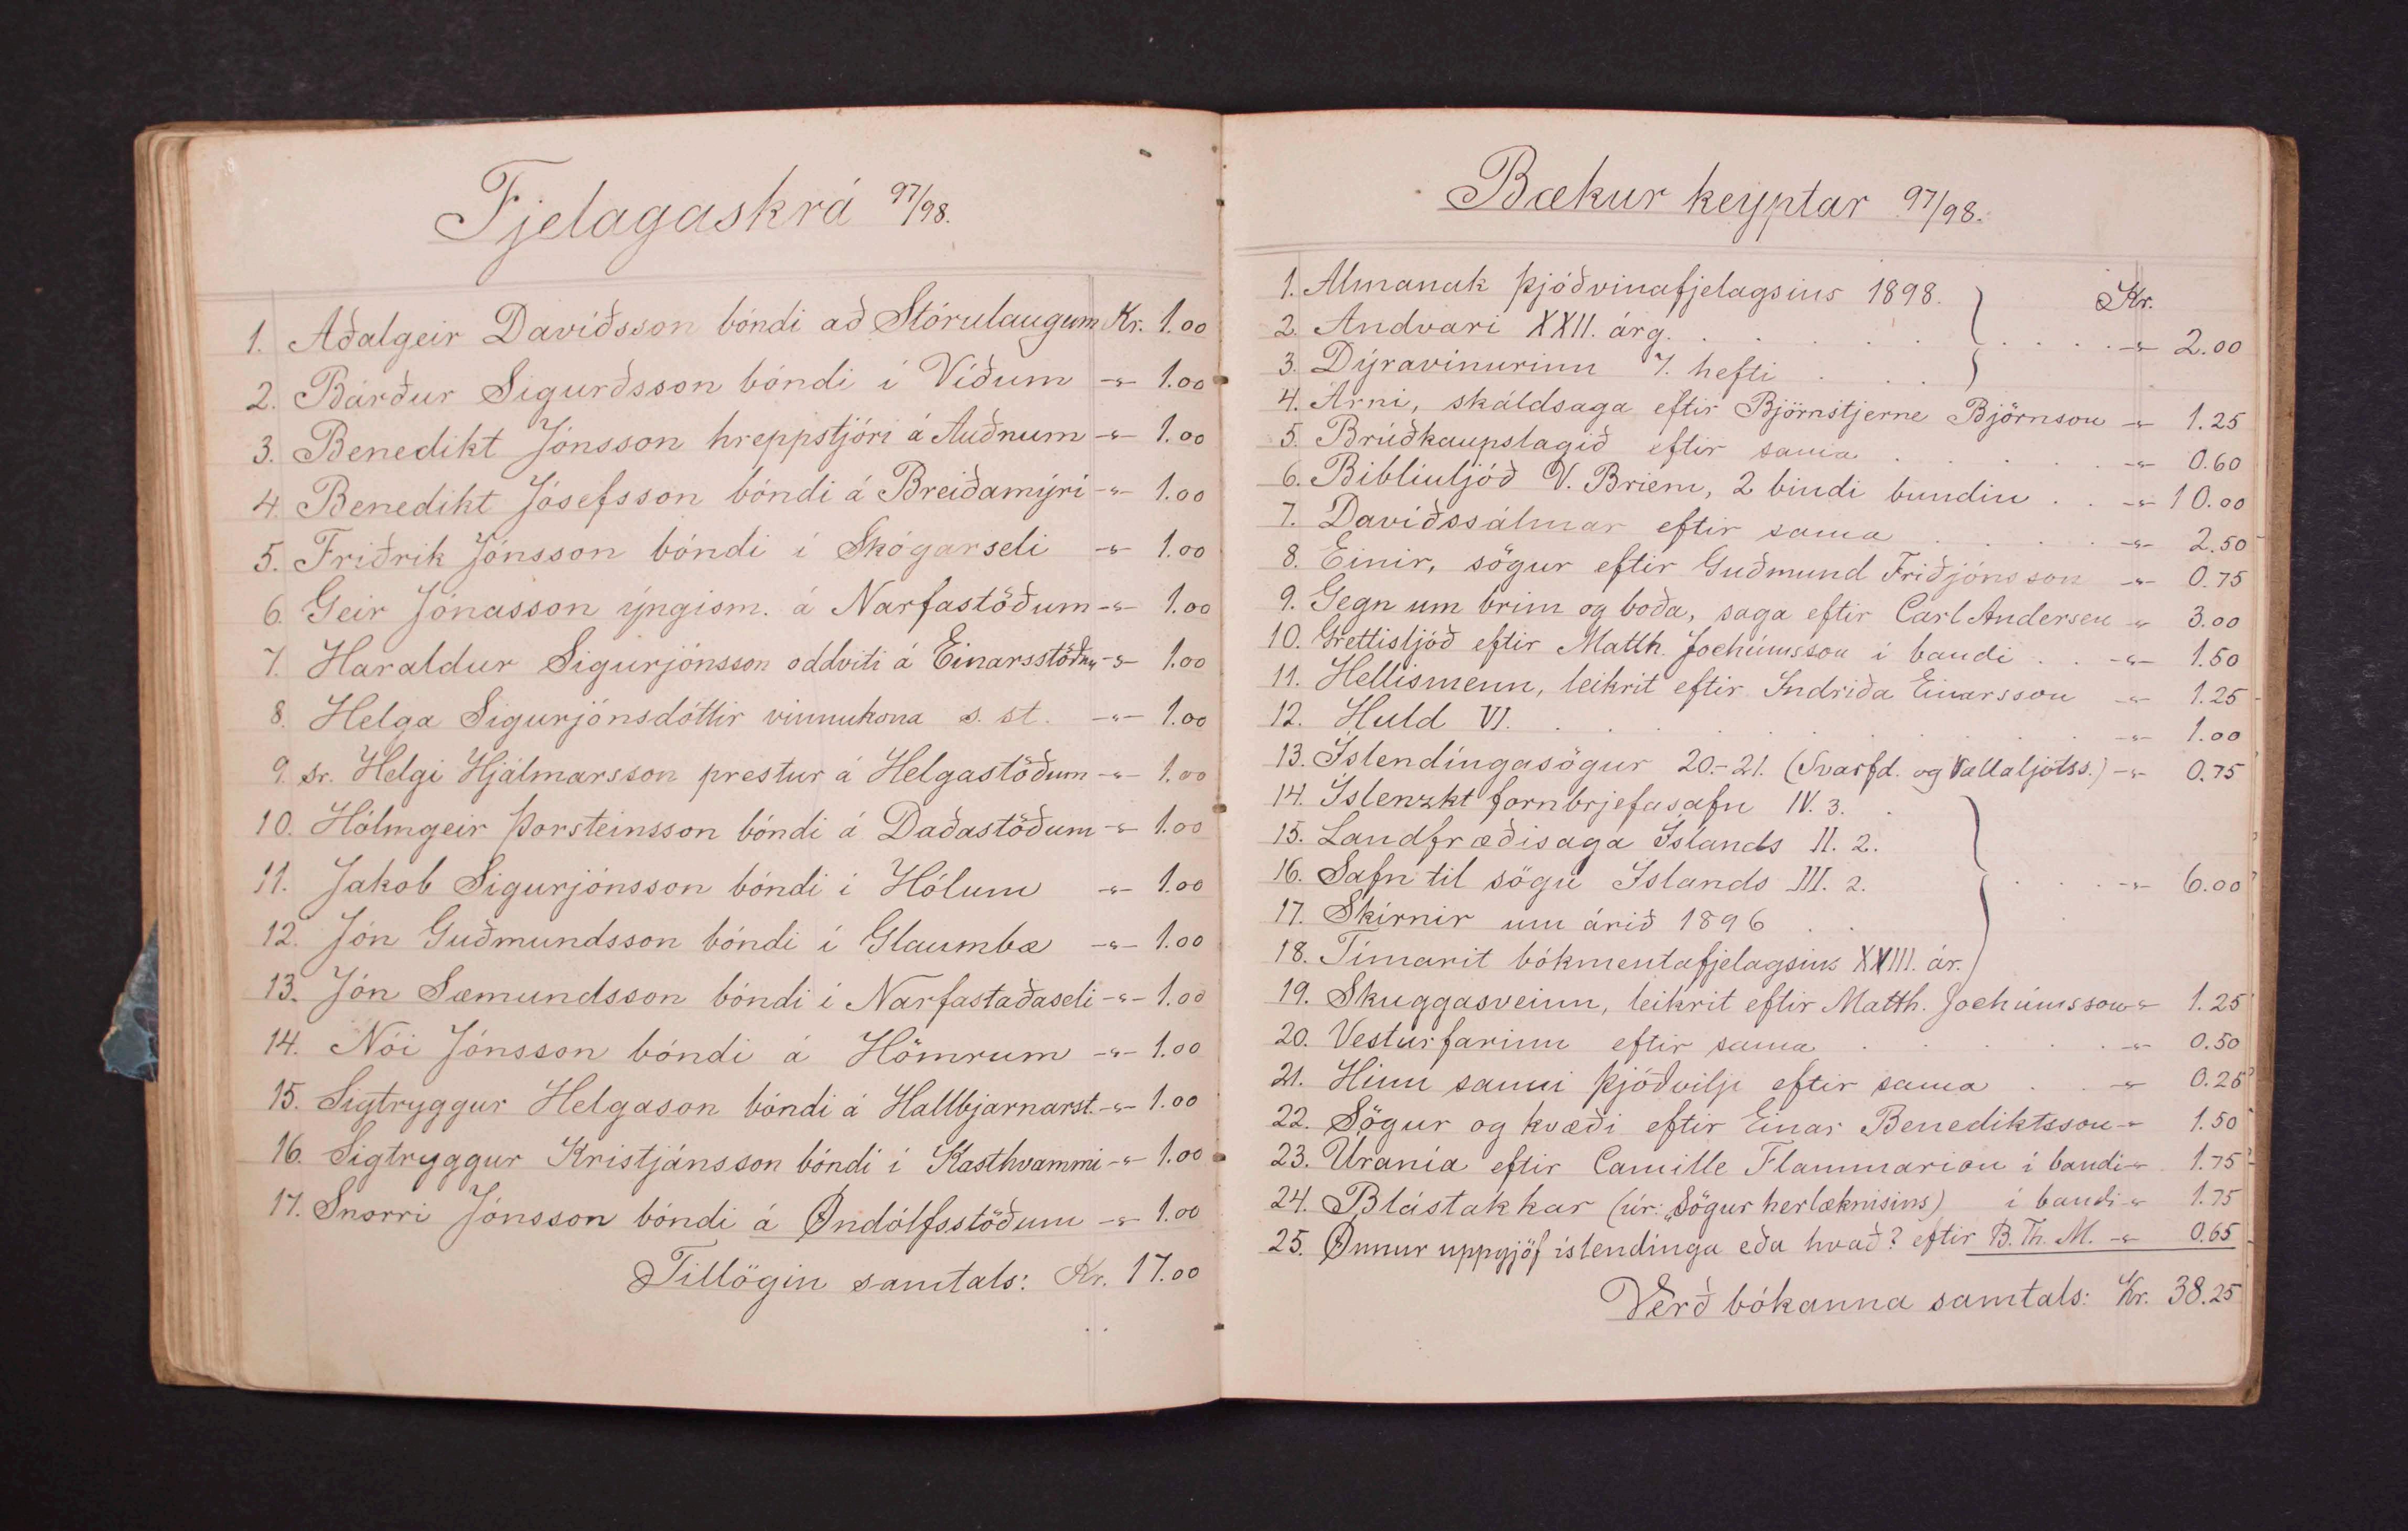 Fjelagaskrá 97/98.
1. Aðalgeir Davíðsson bóndi að Stórulaugum Kr. 1.00
2. Bárður Sigurðsson bóndi í Víðum -"- 1.00
3. Benedikt Jónsson hreppstjóri á Auðnum -"- 1.00
4. Benedikt Jósefsson bóndi á Breiðamýri -"- 1.00
5. Friðrik Jónsson bóndi í Skógarseli -"- 1.00
6. Geir Jónasson ýngism. á Narfastöðum -"- 1.00
7. Haraldur Sigurjónsson oddviti á Einarsstöðum -"- 1.00
8. Helga Sigurjónsdóttir vinnukona s. st. -"- 1.00
9. sr. Helgi Hjálmarsson prestur á Helgastöðum -"- 1.00
10. Hólmgeir Þorsteinsson bóndi á Daðastöðum -"- 1.00
11. Jakob Sigurjónsson bóndi í Hólum -"- 1.00
12. Jón Guðmundsson bóndi í Glaumbæ -"- 1.00
13. Jón Sæmundsson bóndi í Narfastaðaseli -"- 1.00
14. Nói Jónsson bóndi á Hömrum -"- 1.00
15. Sigtryggur Helgason bóndi á Hallbjarnarst. -"- 1.00
16. Sigtryggur Kristjánsson bóndi í Kasthvammi -"- 1.00
17. Snorri Jónsson bóndi á Øndólfsstöðum -"- 1.00
Tillögin samtals: Kr. 17.00
Bækur keyptar 97/98.
1. Almanak þjóðvinafjelagsins 1898. Kr.
2. Andvari XXII. árg. . . . . . -"- 2.00
3. Dýravinurinn 7. hefti . . .
4. Árni, skáldsaga eftir Björnstjerne Björnson -"- 1.25
5. Brúðkaupslagið eftir sama . . . . . -"- 0.60
6. Biblíuljóð V. Briem, 2 bindi bundin . . -"- 10.00
7. Davíðssálmar eftir sama . . . . -"- 2.50
8. Einir, sögur eftir Guðmund Friðjónsson -"- 0.75
9. Gegn um brim og boða, saga eftir Carl Andersen -"- 3.00
10. Grettisljóð eftir Matth. Jochúmsson í bandi . . -"- 1.50
11. Hellismenn, leikrit eftir Indriða Einarsson -"- 1.25
12. Huld VI. . . . . . . . . . -"- 1.00
13. Íslendíngasögur 20.-21. (Svarfd. og Vallaljótss.) -"- 0.75
14. Íslenzkt fornbrjefasafn IV. 3. .
15. Landfræðisaga Íslands II. 2.
16. Safn til sögu Íslands III. 2. . . . -"- 6.00
17. Skírnir um árið 1896 . .
18. Tímarit bókmentafjelagsins XVIII. ár.
19. Skuggasveinn, leikrit eftir Matth. Jochúmsson -"- 1.25
20. Vesturfarinn eftir sama . . . . . -"- 0.50
21. Hinn sanni þjóðvilji eftir sama . . -"- 0.25
22. Sögur og kvæði eftir Einar Benediktsson -"- 1.50
23. Úranía eftir Camille Flammarion í bandi -"- 1.75
24. Blástakkar (úr: „Sögur herlæknisins) í bandi -"- 1.75
25. Ønnur uppgjöf íslendínga eða hvað? eftir B. Th. M. -"- 0.65
Verð bókanna samtals: Kr. 38.25